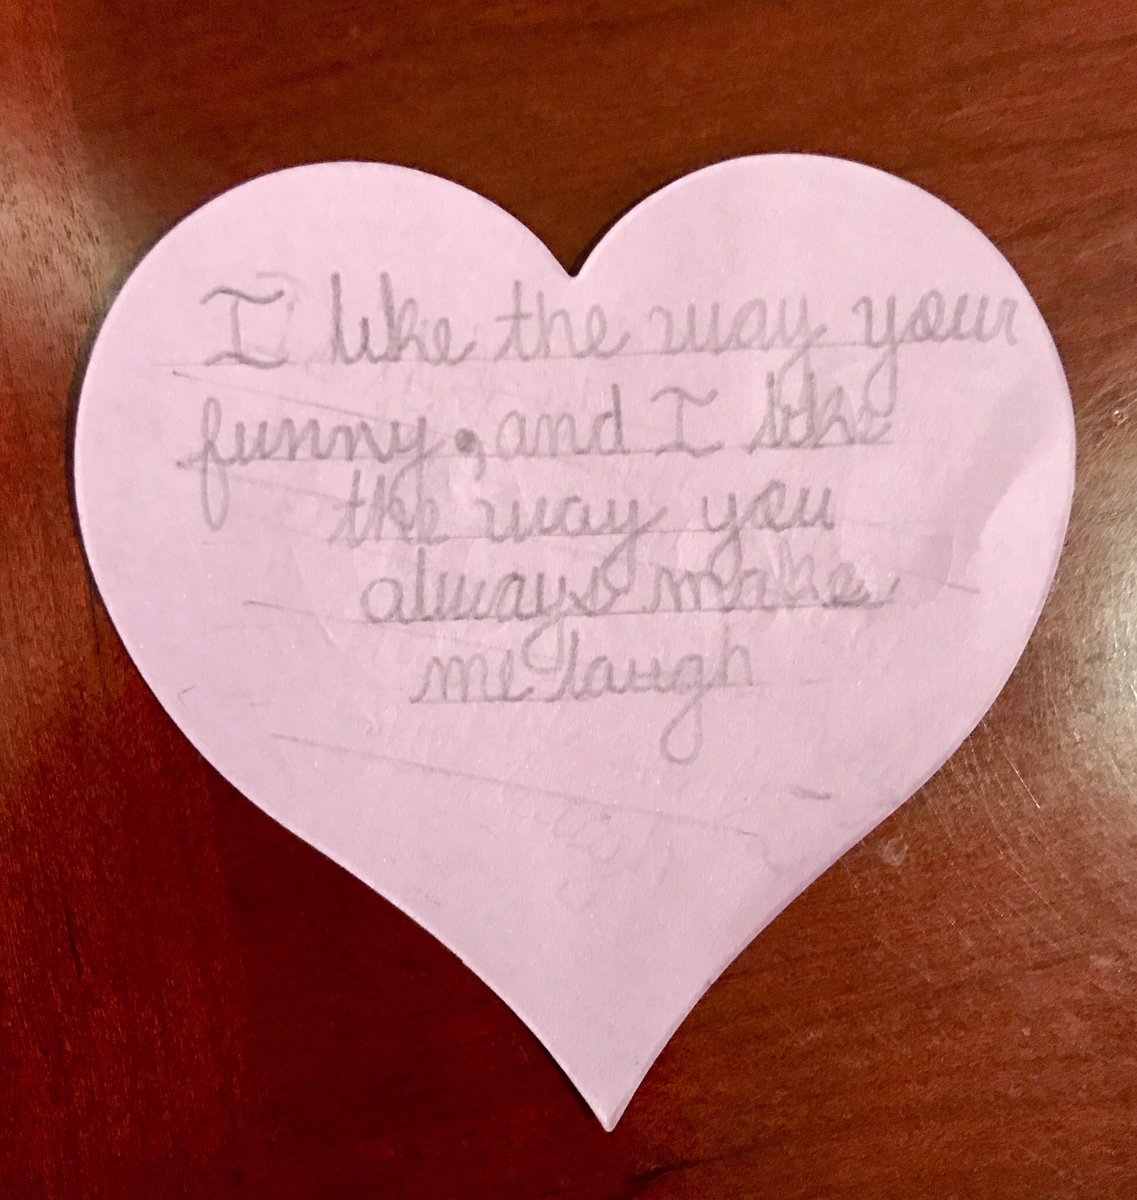 I like the way your
funny, and I like
the way you
always make
me laugh